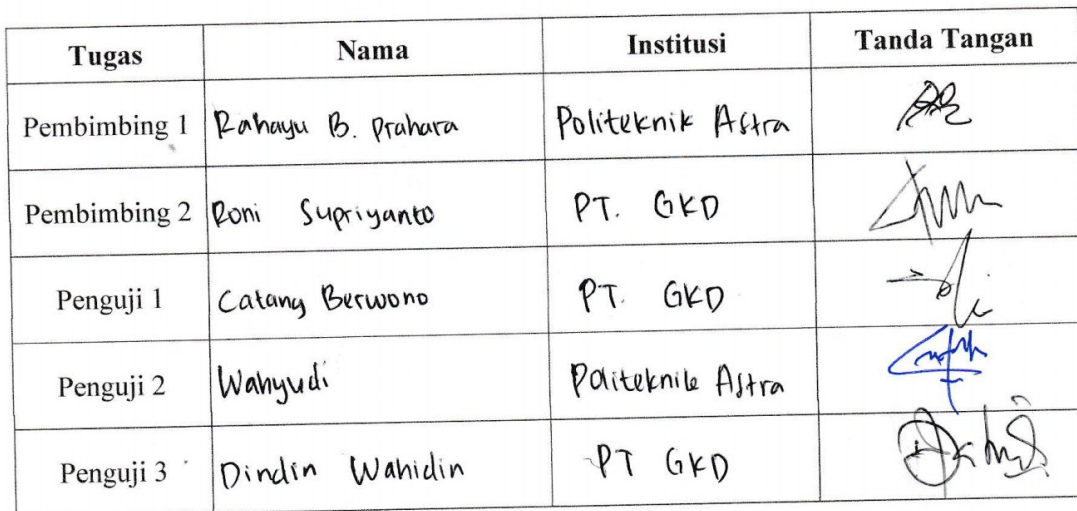 Tugas Nama Institusi Tanda Tangan
Pembimbing 1 Rahayu B. Prahara Politeknik Astra
Pembimbing 2 Roni Supriyanto PT. GKD
Penguji 1 Catang Berwono PT. GKD
Penguji 2 Wahyudi Politeknik Astra
Penguji 3 Dindin Wahidin PT GKD